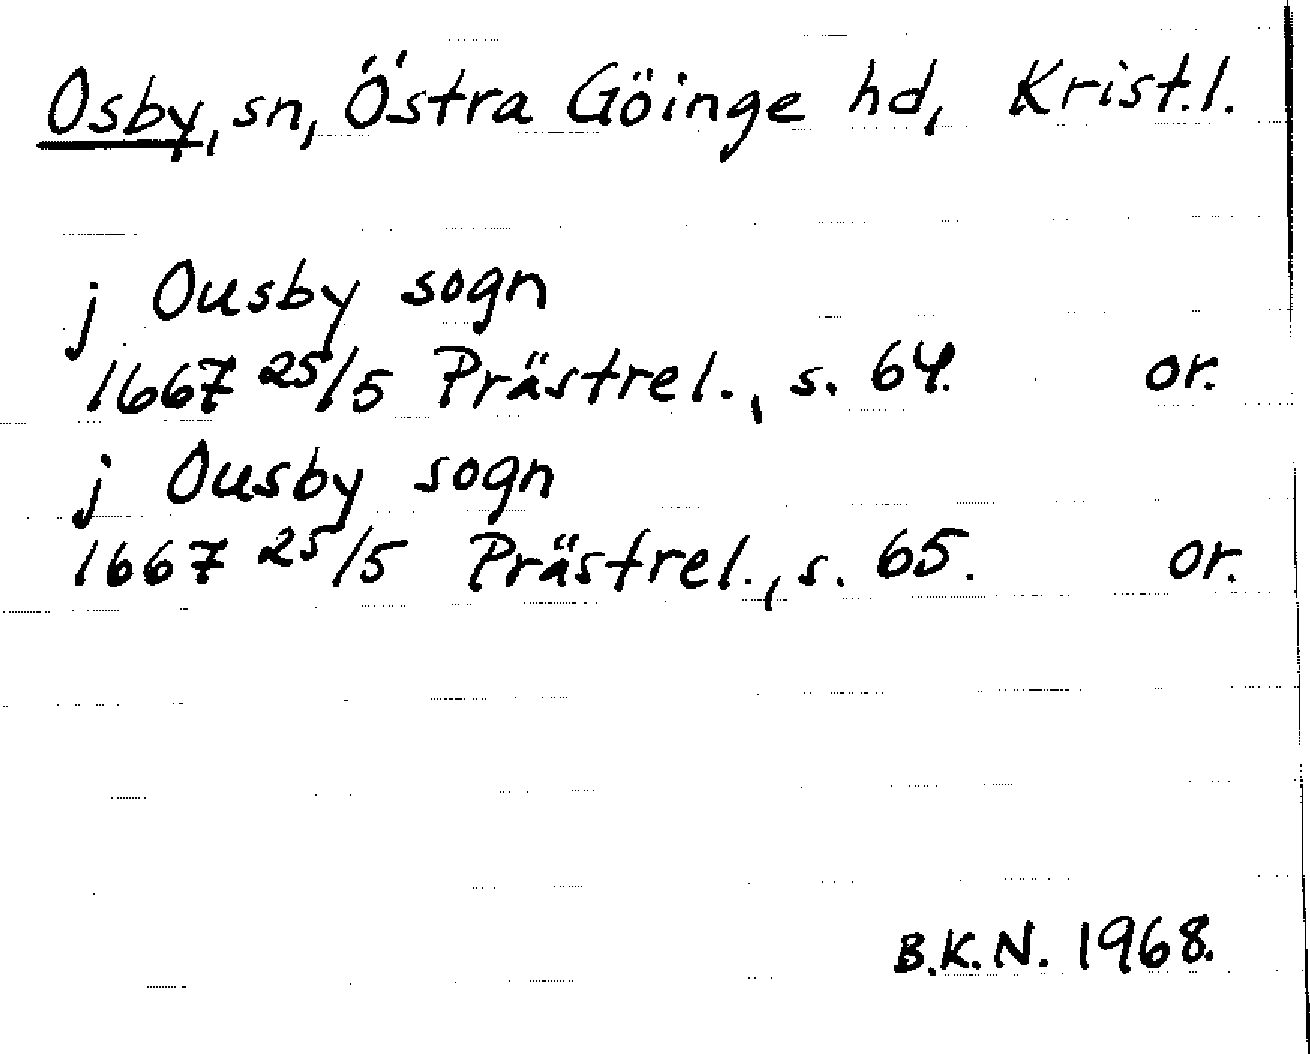 Osby, sn, Östra Göinge hd, Krist.l.
j Ousby sogn
1667 25/5 Prästrel., s. 64. or.
j Ousby sogn
1667 25/5 Prästrel., s. 65. or.
B.K.N. 1968.